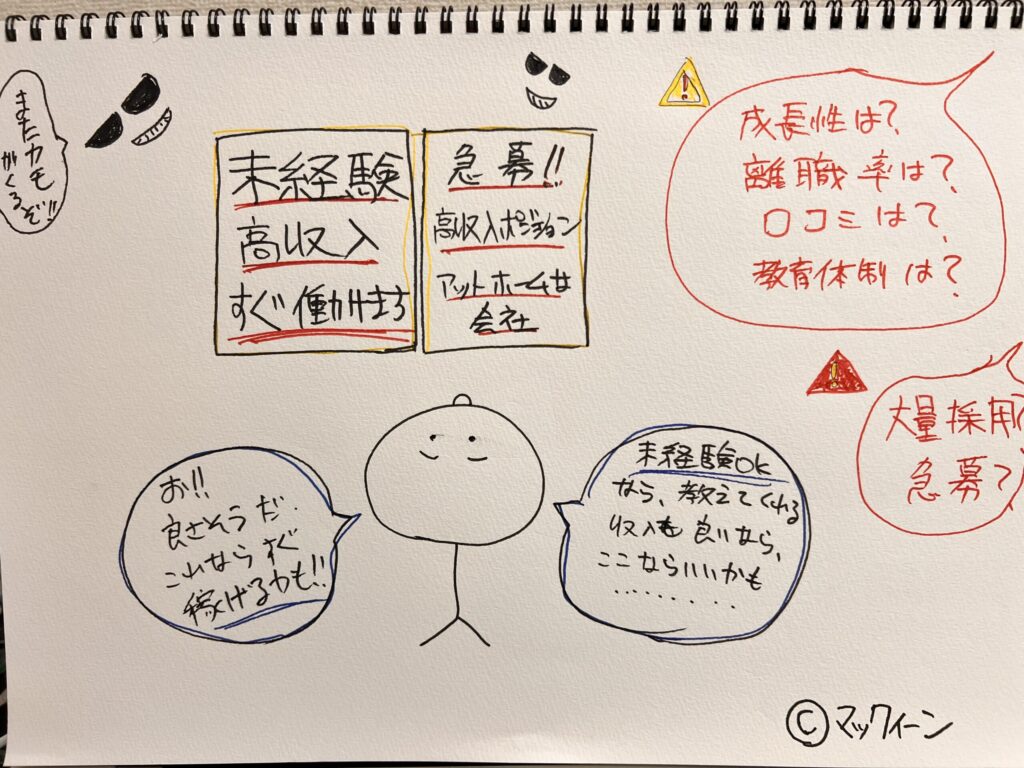 また カモ
がくるぞ!!
未経験
高収入
すぐ働けます
急募!!
高収入ポジション
アットホームな
会社
成長性は?
離職率は?
口コミは?
教育体制は?
大量採用?
急募?
お!!
良さそうだ.
これならすぐ
稼げるかも!!
未経験OK
なら、教えてくれる
収入も良いなら、
ここならいいかも
.........
©マックィーン